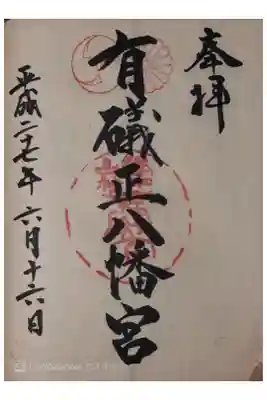 奉拝
有磯正八幡宮
平成二十七年六月十六日